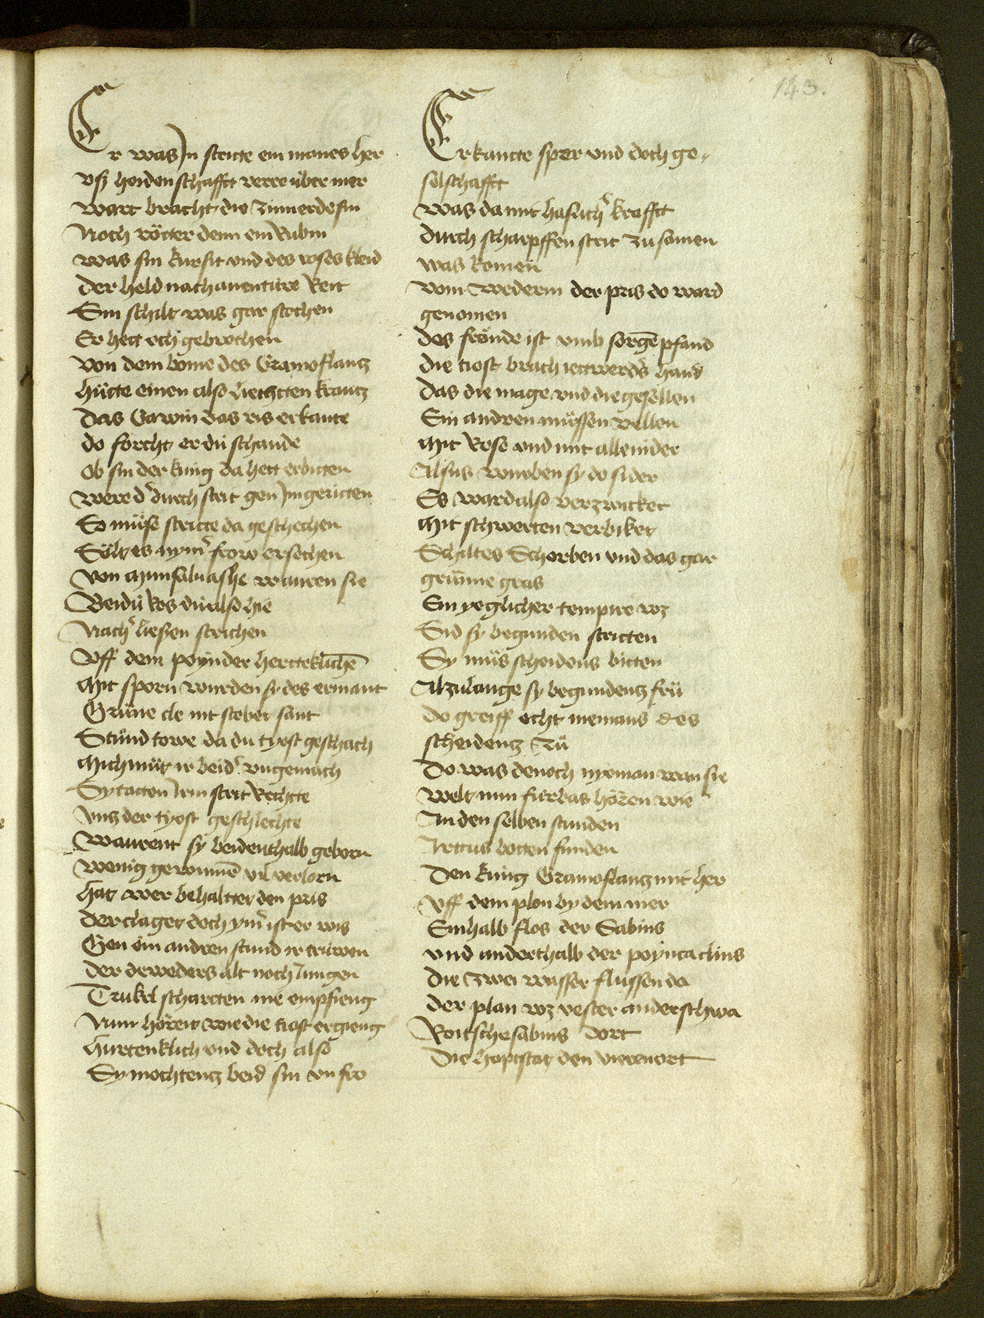 143.
Er was Jn stritte ein manes her
vsz heidenschafft verre über mer
wart bracht die zimierde sin
Noch rötter denn ein Rubin
was sin kursit vnd des roses kleid
Der held nach auentture Reit
Sin schilt was gar stochen
Er hett och gebrochen
Von dem bome des Gramoflantz
hütte einen also liechtten krantz
Das Gawin das ris erkante
do forcht er du schande
ob sin der kung da hett erbitten
were dˀ durch strit gen Jm geritten
So müse stritte da geschechen
Sölt es nymˀ frow ersechen
Von munsaluasche wauren sie
Beidü ros dü also hie
Nachˀ liessen strichen
Vff dem poynder hertteklichē
Mit sporn wurden sy des ermant
Grüne cle nit stober sant
Stünd towe da du tyost geschach
Mich müt ir beidˀ vngemach
Sy tatten Jrm strit Rechtte
Vnz der tyost geschlechte
Waurent sy beidenthalb geborn
wenig gewunnē vil verlorn
hat wer behaltter den pris
Der claget doch ymˀ ist er wis
Gen ein andren stund ir truwen
der deweders alt noch Jungen
Trukel schartten nie empfieng
Nun hörent wie die tiost ergieng
Hurtenklich vnd doch also
Sy mochtentz beid sin vn fro
Erkantte sper vnd doch ge-
selschafft
was da mit haslichˀ krafft
durch scharpffen strit zu samen
was komen
Vom wederm der pris do ward
genomen
des fröude ist vmb sorgē pfand
die tiost brach iettwerdˀs hand
das die mage vnd die gesellen
Ein andren müssen vellen
Mit Rose vnd mit alle nider
Alsus wurben sy do sider
Es ward also verzwicket
Mit schwerten verbiket
Schiltes Schorben vnd das gar
grüne gras
Ein yeglicher tempire waz
Sid sy begunden stritten
Sy müs scheidens bitten
Alzulange sy begundentz frü
do greiff echt niemans des
scheidentz zü
Do was denoch nyeman wan sie
welt nun furbas hören wie
An den selben stunden
Artus botten funden
Den kung Gramoflantz mit her
Vff dem plon by dem mer
Einhalb flos der Sabins
vnd anderthalb der poynzaclins
die zwei wasser flussen da
der plan wz vester anderschwa
Roitschesabins dort
Die hoptstat den vierenort